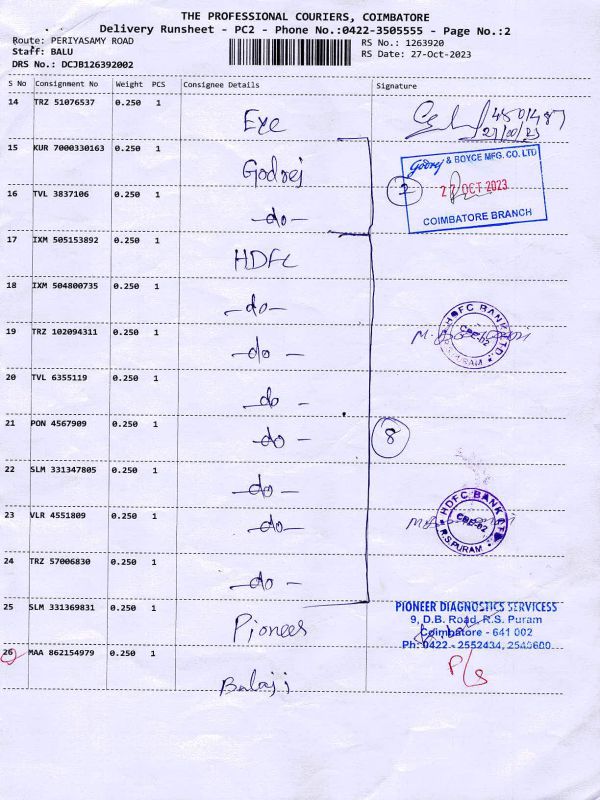 THE PROFESSIONAL COURIERS, COIMBATORE
Delivery Runsheet - PC2 - Phone No.:0422-3505555 - Page No.:2
Route: PERIYASAMY ROAD
RS No.: 1263920
Staff: BALU
RS Date: 27-Oct-2023
DRS No.: DCJB126392002
S No Consignment No Weight PCS Consignee Details Signature
14 TRZ 51076537 0.250 1 Eye
15 KUR 7000330163 0.250 1 Godrej
Godrej & BOYCE MFG. CO. LTD
16 TVL 3837106 0.250 1 -do- 2
27 OCT 2023
COIMBATORE BRANCH
17 IXM 505153892 0.250 1 HDFC
18 IXM 504800735 0.250 1 -do-
19 TRZ 102094311 0.250 1 -do-
HDFC BANK LTD
CPE-02
R.S PURAM
20 TVL 6355119 0.250 1 -do-
21 PON 4567909 0.250 1 -do- 8
22 SLM 331347805 0.250 1 -do-
23 VLR 4551809 0.250 1 -do-
HDFC BANK LTD
CPE-02
R.S PURAM
24 TRZ 57006830 0.250 1 -do-
25 SLM 331369831 0.250 1 Pioneer
PIONEER DIAGNOSTICS SERVICESS
9, D.B. Road, R.S. Puram
Coimbatore - 641 002
Ph: 0422 - 2552434, 2545600
26 MAA 862154979 0.250 1 Balaji P/S